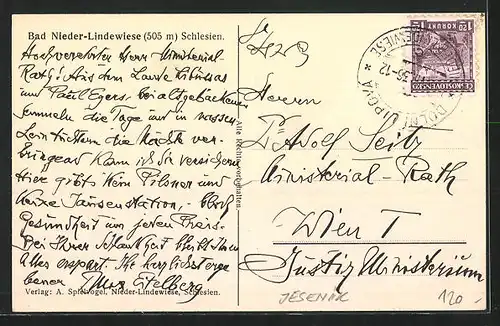 Bad Nieder-Lindewiese (505 m) Schlesien.
Hochverehrter Herr Ministerial-
Rath! Aus dem Lande Libussas
und Paul Egers, bei altgebackenen
Semmeln die Tage und in nassen
Leintüchern die Nächte ver-
bringend kann ich Sie versichern
Hier gibts kein Pilsner und
keine Jausenstation, bloss
Gesundheit um jeden Preis.
Bei Ihrer Schlankheit bleibt Ihnen
Alles erspart. Ihr herzlichst erge-
bener Max Eitelberg
Verlag: A. Spielvogel, Nieder-Lindewiese, Schlesien.
Alle Rechte vorbehalten.
ČESKOSLOVENSKO
1·20 KORUNY 1·20
DOLNÍ LIPOVÁ
LINDEWIESE
Herrn
Dr Adolf Seitz
Ministerial-Rath
Wien I
Justiz Ministerium
JESENIK
120.-